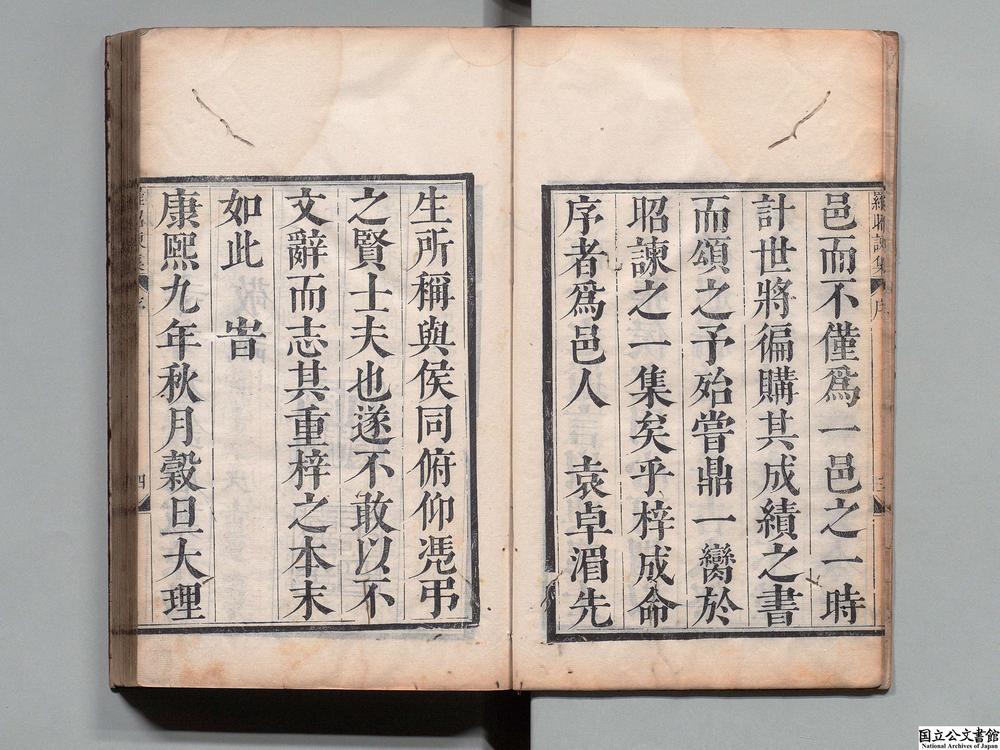 邑而不僅爲一邑之一時
計世將徧購其成績之書
而頌之予殆嘗鼎一臠於
昭諫之一集矣乎梓成命
序者爲邑人 袁卓湄先
生所稱與侯同俯仰憑弔
之賢士夫也遂不敢以不
文辭而志其重梓之本末
如此 旹
康熙九年秋月穀旦大理
羅昭諫集 序
四
国立公文書館
National Archives of Japan